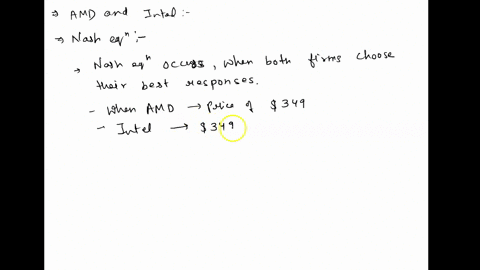 ⇒ AMD and Intel :-
→ Nash eqⁿ :-
→ Nash eqⁿ occurs, when both firms choose
their best responses.
- When AMD → Price of $349
- Intel → $349